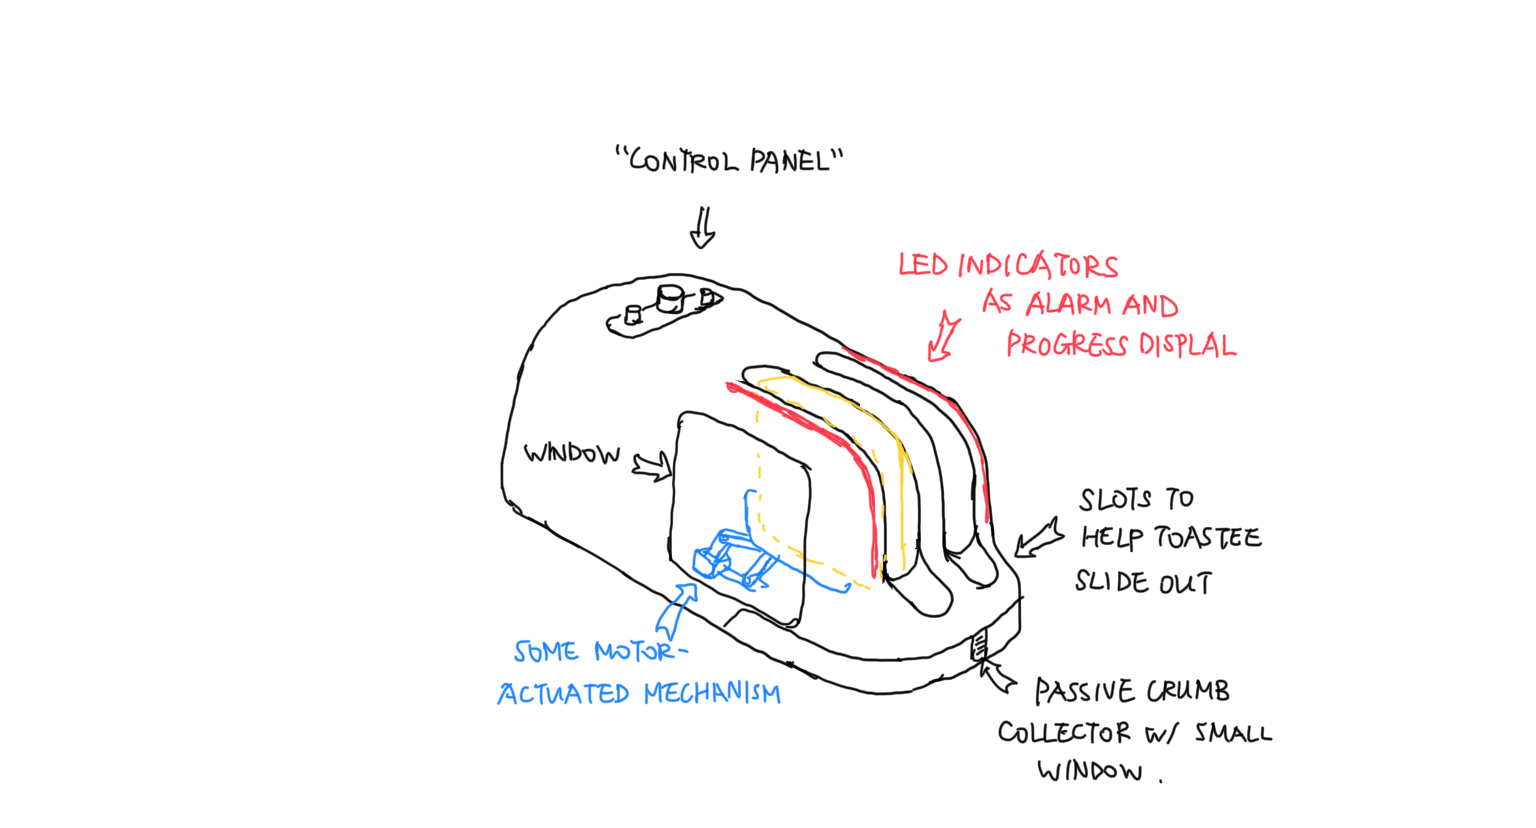 "CONTROL PANEL"
LED INDICATORS
AS ALARM AND
PROGRESS DISPLAL
WINDOW
SLOTS TO
HELP TOASTEE
SLIDE OUT
SOME MOTOR-
ACTUATED MECHANISM
PASSIVE CRUMB
COLLECTOR W/ SMALL
WINDOW.